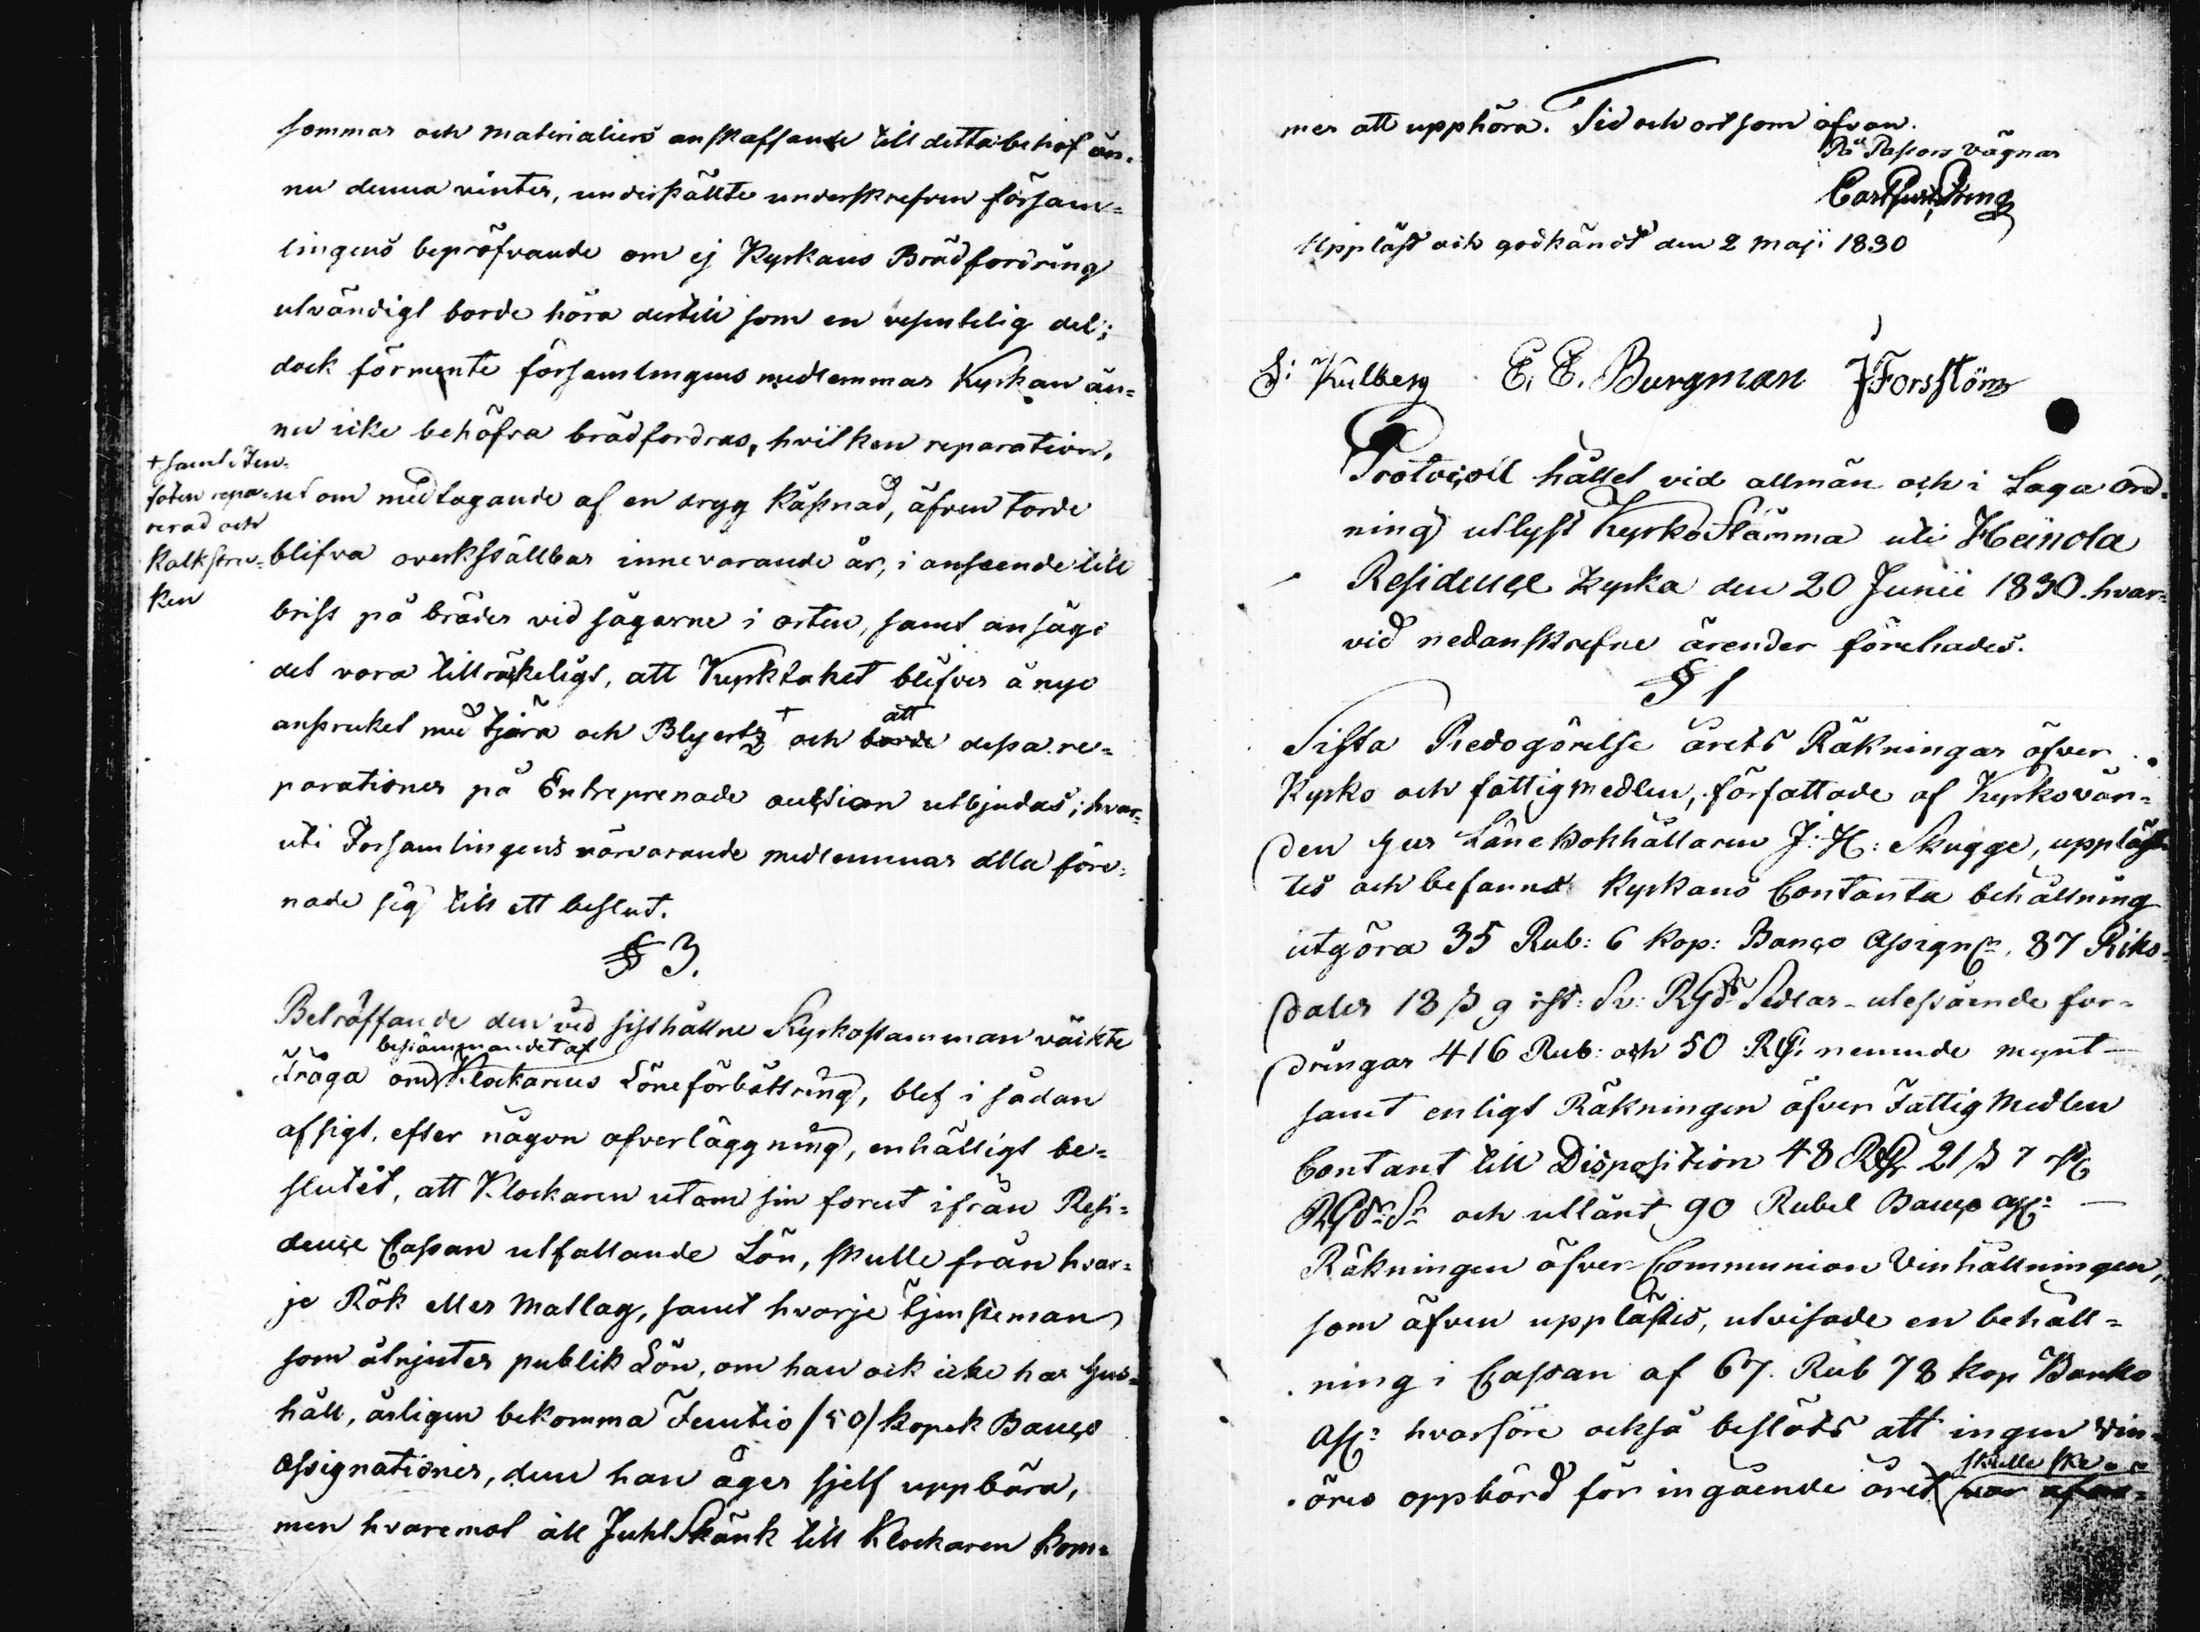 sommar och materialiers anskaffande till detta behof än-
nu denna vinter, underställte underskrefven försam-
lingens bepröfvande om ej Kyrkans Brädfordring
utvändigt borde höra dertill som en vesentelig del;
dock förmente församlingens medlemmar Kyrkan än-
nu icke behöfva brädfordras, hvilken reparation,
utom medtagande af en dryg kåstnad, äfven torde
blifva overkställbar innevarande år, i anseende till
brist på bräder vid sågarne i orten, samt ansågs
det vara tillräckeligt, att Kyrktaket blifver å nyo
anstruket med tjära och Blyertz + och borde att dessa re-
parationer på Entreprenade auction utbjudas; hvar-
uti Församlingens närvarande medlemmar alla före-
nade sig till ett beslut.
+ samt Sten-
foten repa-
rerad och
Kalkstru-
ken
§ 3.
Beträffande den vid sisthållne Kyrkostämman väckte
fråga om bestämmandet af Klockarens Löneförbättring, blef i sådan
afsigt, efter någon öfverläggning, enhälligt be-
slutet, att Klockaren utom sin förut ifrån Resi-
dence Cassan utfallande Lön, skulle från hvar-
je Rök eller Matlag, samt hvarje tjensteman
som åtnjuter publik Lön, om han ock icke har Hus-
håll, årligen bekomma Femtio /50/ kopek Banco
Assignationer, dem han äger sjelf uppbära,
men hvaremot all Juhl Skänk till Klockaren kom-
mer att upphöra. Tid och ort som ofvan.
På Pastors vägnar
Carl Gust. Streng
Uppläst och godkändt den 2 Maji 1830
S: Kulberg E. E. Burgman J Forsström
Protocoll hållet vid allmän och i Laga ord-
ning utlyst KyrkoStämma uti Heinola
Residence Kyrka den 20 Junii 1830. hvar-
vid nedanskrefne ärender förehades.
§ 1
Sista Redogörelse årets Räkningar öfver
Kyrko och fattigmedlen, författade af Kyrkovär-
den Herr Länebokhållaren J: H: Skugge, uppläs-
tes och befanns Kyrkans Contanta behållning
utgöra 35 Rub: 6 Kop: Banco Assign:, 87 Riks-
daler 18 s 9 rst: Sv: RGds Sedlar - utestående for-
dringar 416 Rub: och 50 RG: nemnde mynt -
samt enligt Räkningen öfver Fattig Medlen
Contant till Disposition 48 Rdr 21 s 7 rst
RGds: Sr och utlånt 90 Rubel Banco ass: -
Räkningen öfver Communion Vinhållningen,
som äfven upplästes, utvisade en behåll-
ning i Cassan af 67. Rub 78 kop Banko
Ass: hvarföre också beslöts att ingen vin-
öres oppbörd för ingående året skulle ske